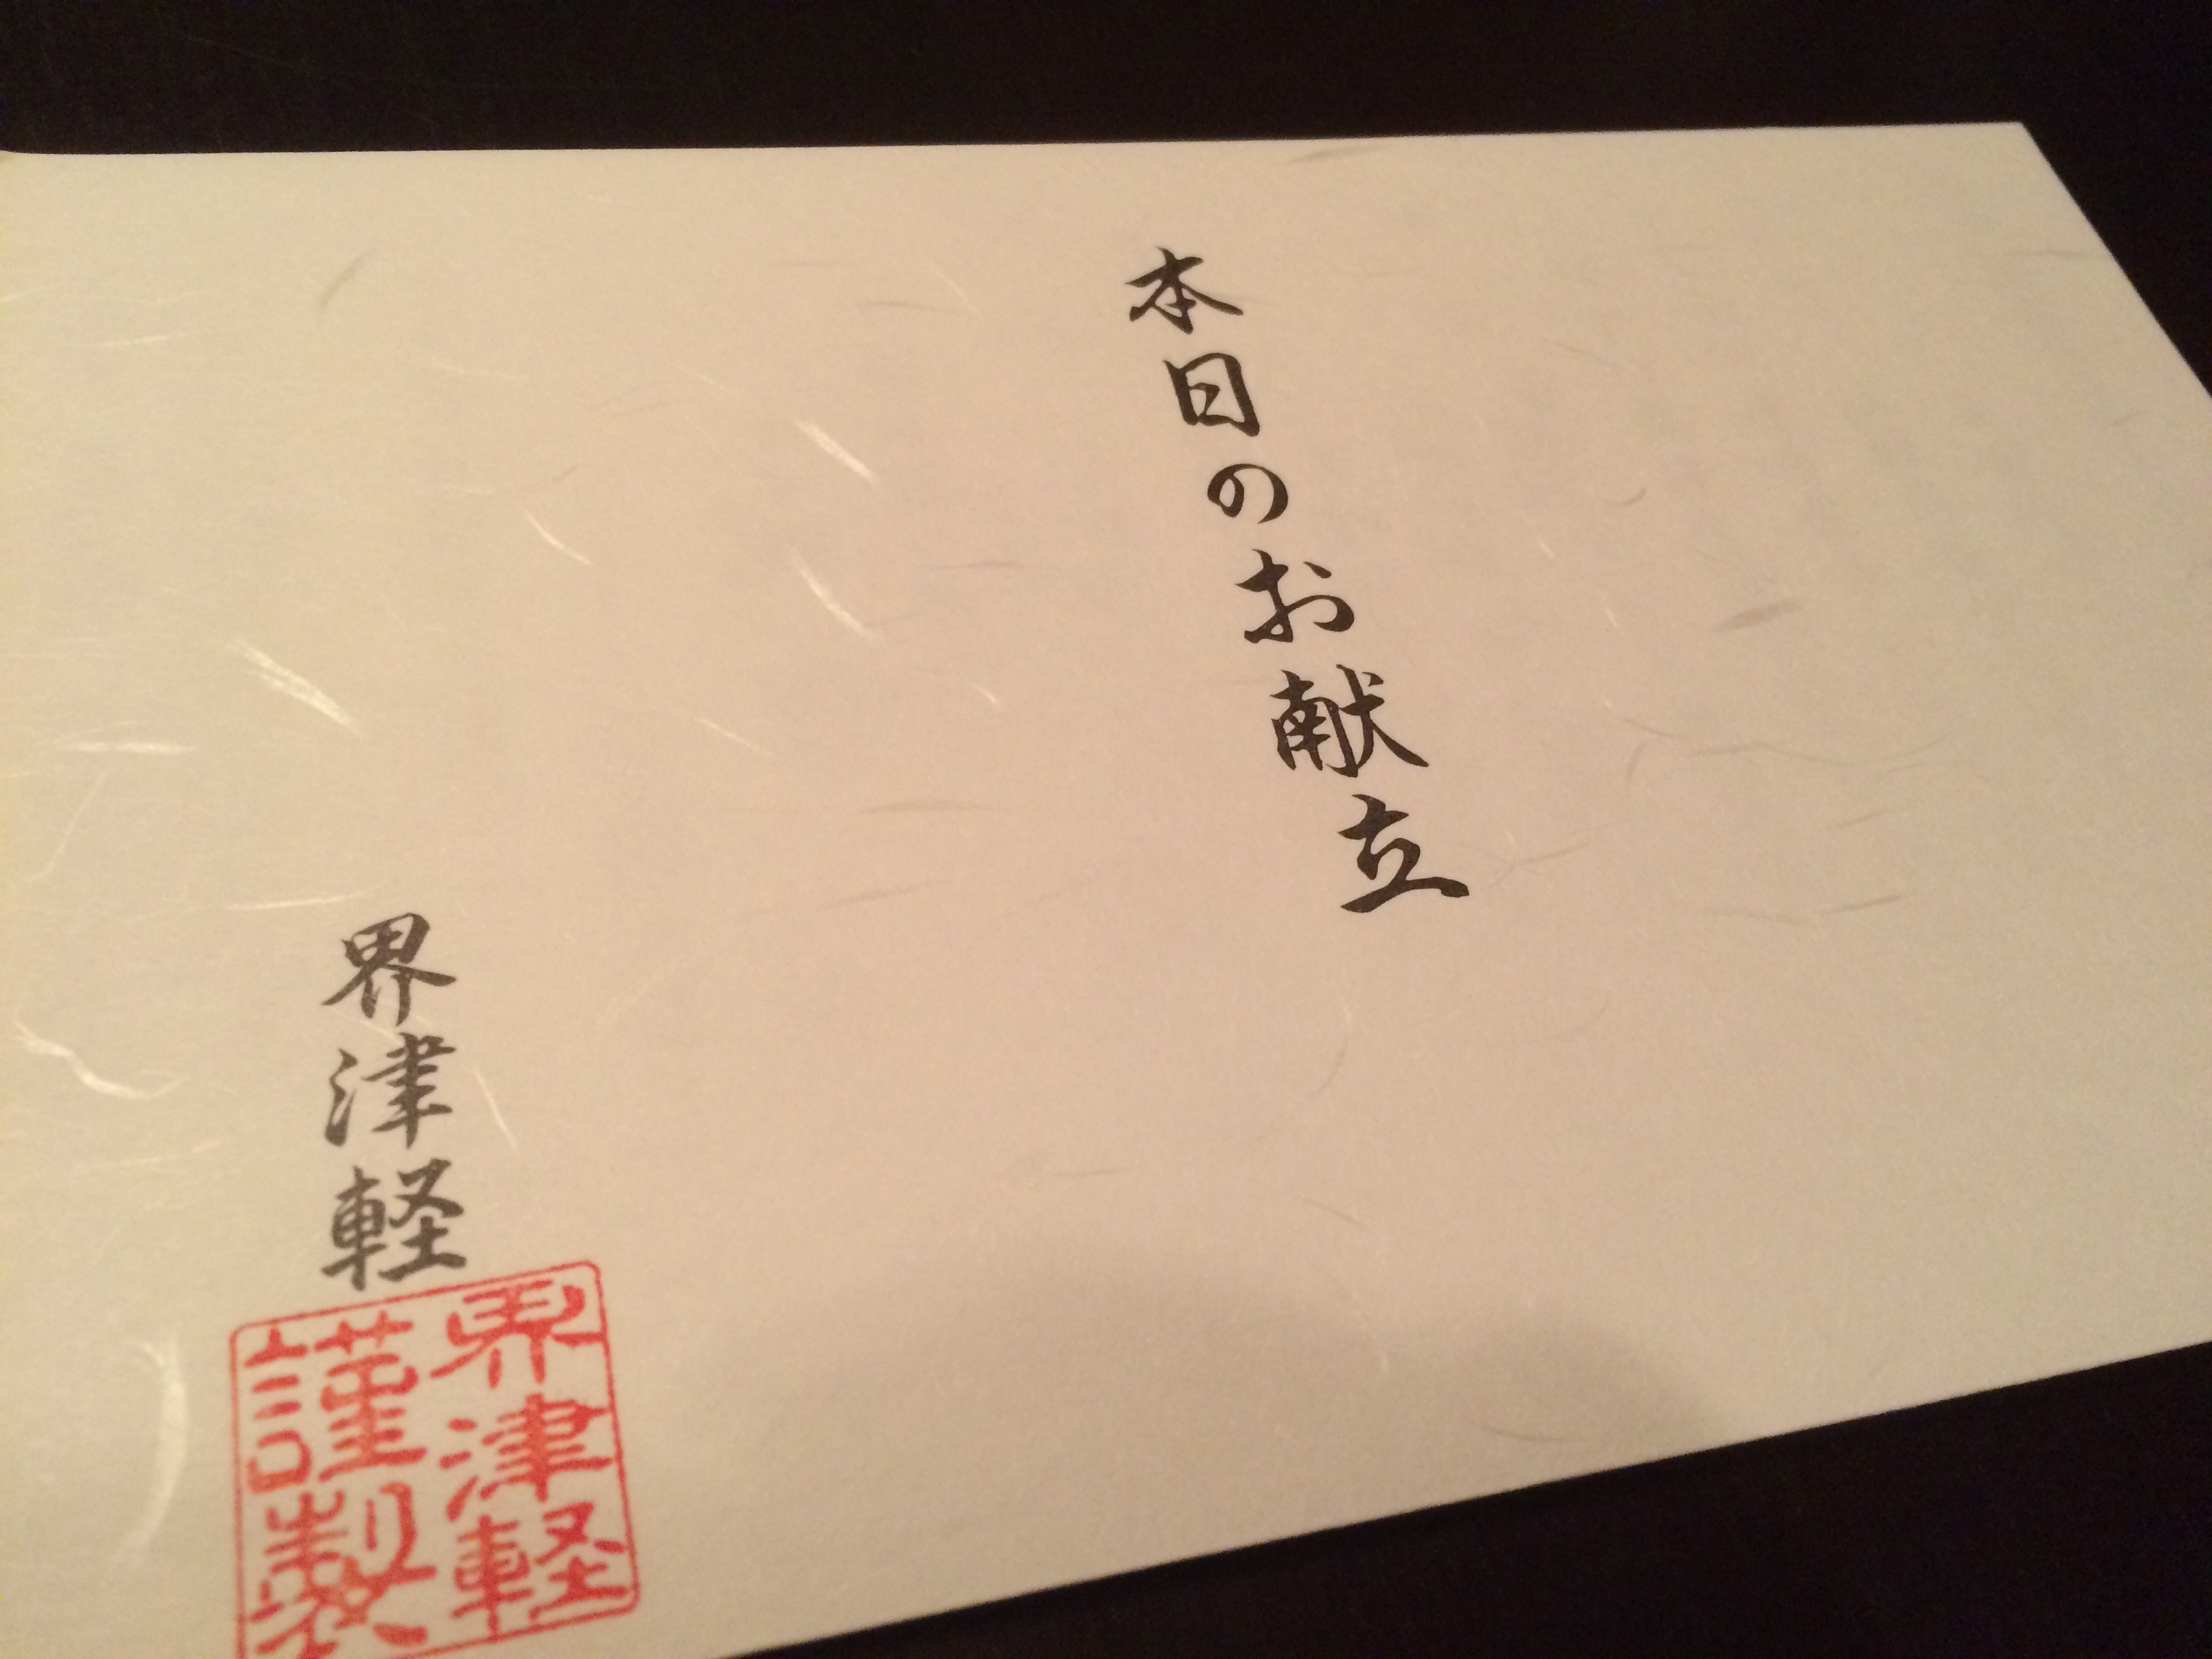 本日のお献立
界津軽
界津軽
謹製